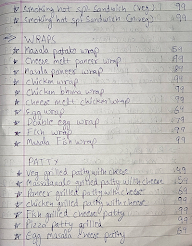 * Smoking hot spl Sandwich (veg) 99
* Smoking hot spl Sandwich (N.veg) 99
WRAPS
* Masala potato wrap 69
* Cheese melt paneer wrap
* Masala paneer wrap
* Chicken wrap 99
* Chicken bhuna wrap
* Cheese melt chicken wrap
* Egg wrap
* Double egg wrap 79
* Fish wrap
* Masala Fish wrap 99
PATTY
* Veg grilled patty with cheese
* grilled patty with cheese
* Paneer grilled patty with cheese
* Chicken grilled patty with cheese 99
* Fish grilled cheese patty
* Pizza patty grilled
* Egg masala cheese patty 69